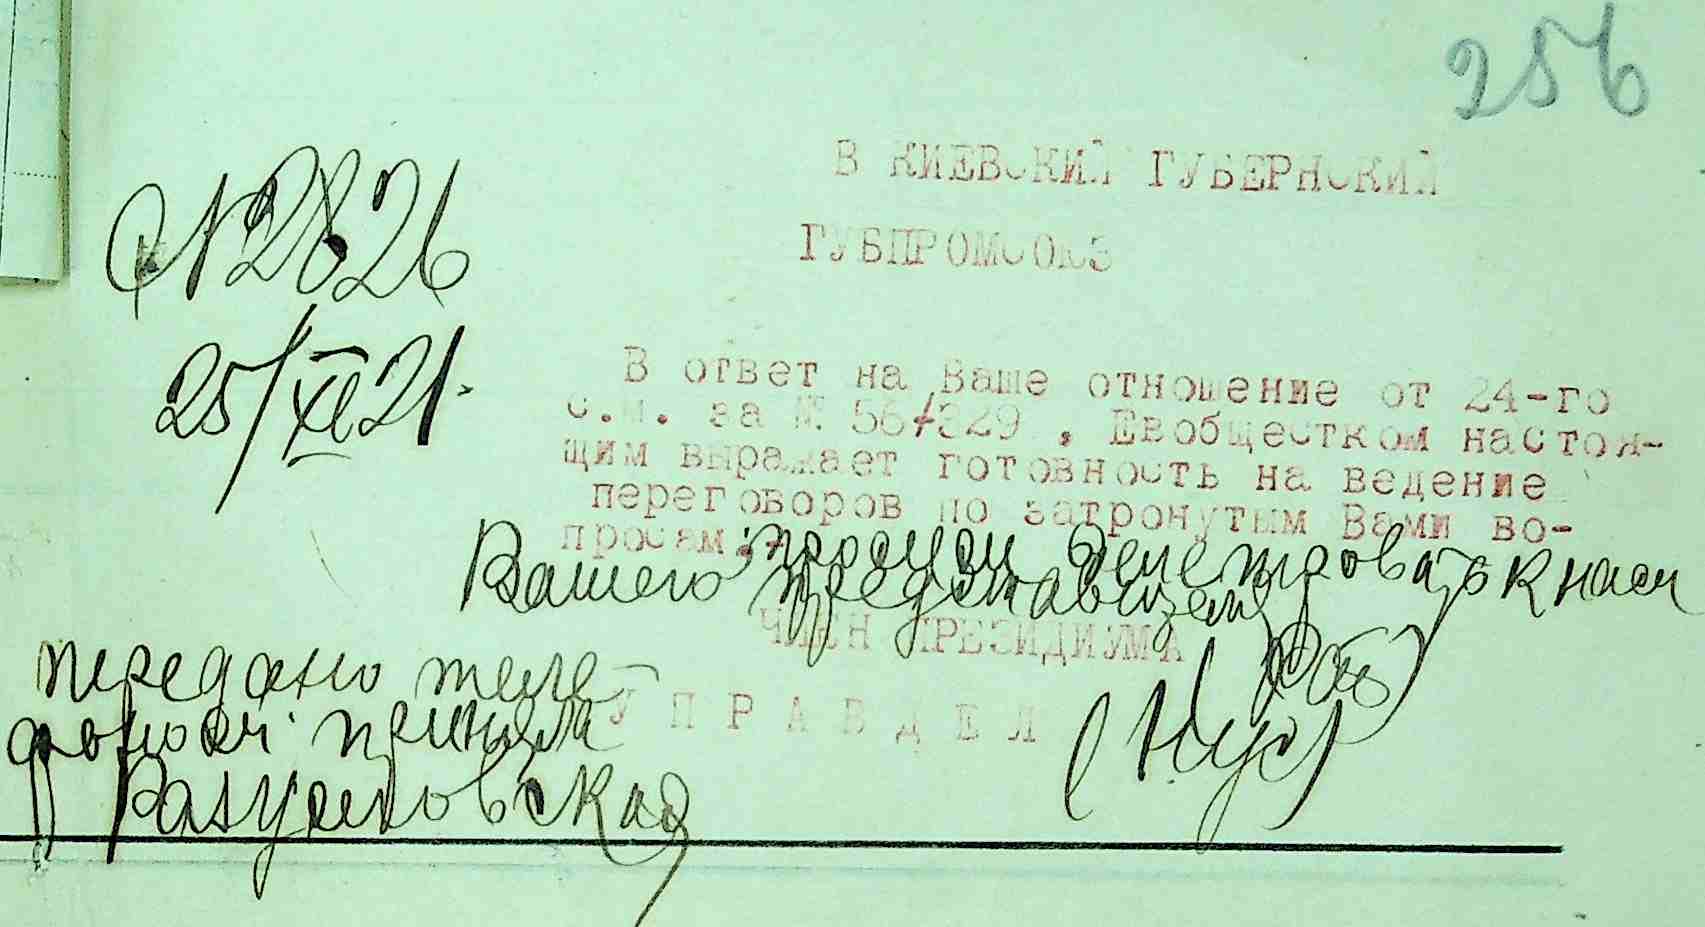 256
В КИЕВСКИЙ ГУБЕРНСКИЙ
ГУБПРОМСОЮЗ
№ 2826
25/XI 21.
В ответ на Ваше отношение от 24-го
с.м. за № 56/329 , Евобщестком настоя-
щим выражает готовность на ведение
переговоров по затронутым Вами во-
просам.
просим делегировать к нам
Вашего представителя
ЧЛЕН ПРЕЗИДИУМА
УПРАВДЕЛ
передано теле-
фоном приняла
Разумовская